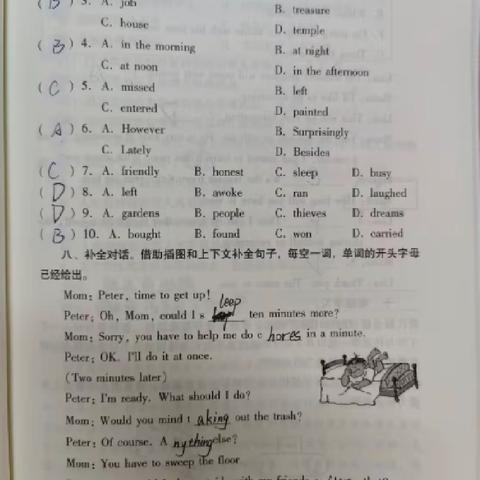 ( B ) 3. A. job B. treasure
C. house D. temple
( B ) 4. A. in the morning B. at night
C. at noon D. in the afternoon
( C ) 5. A. missed B. left
C. entered D. painted
( A ) 6. A. However B. Surprisingly
C. Lately D. Besides
( C ) 7. A. friendly B. honest C. sleep D. busy
( D ) 8. A. left B. awoke C. ran D. laughed
( D ) 9. A. gardens B. people C. thieves D. dreams
( B ) 10. A. bought B. found C. won D. carried
八、补全对话。借助插图和上下文补全句子，每空一词，单词的开头字母
已经给出。
Mom: Peter, time to get up!
Peter: Oh, Mom, could I s leep ten minutes more?
Mom: Sorry, you have to help me do c hores in a minute.
Peter: OK. I'll do it at once.
(Two minutes later)
Peter: I'm ready. What should I do?
Mom: Would you mind t aking out the trash?
Peter: Of course. A nything else?
Mom: You have to sweep the floor